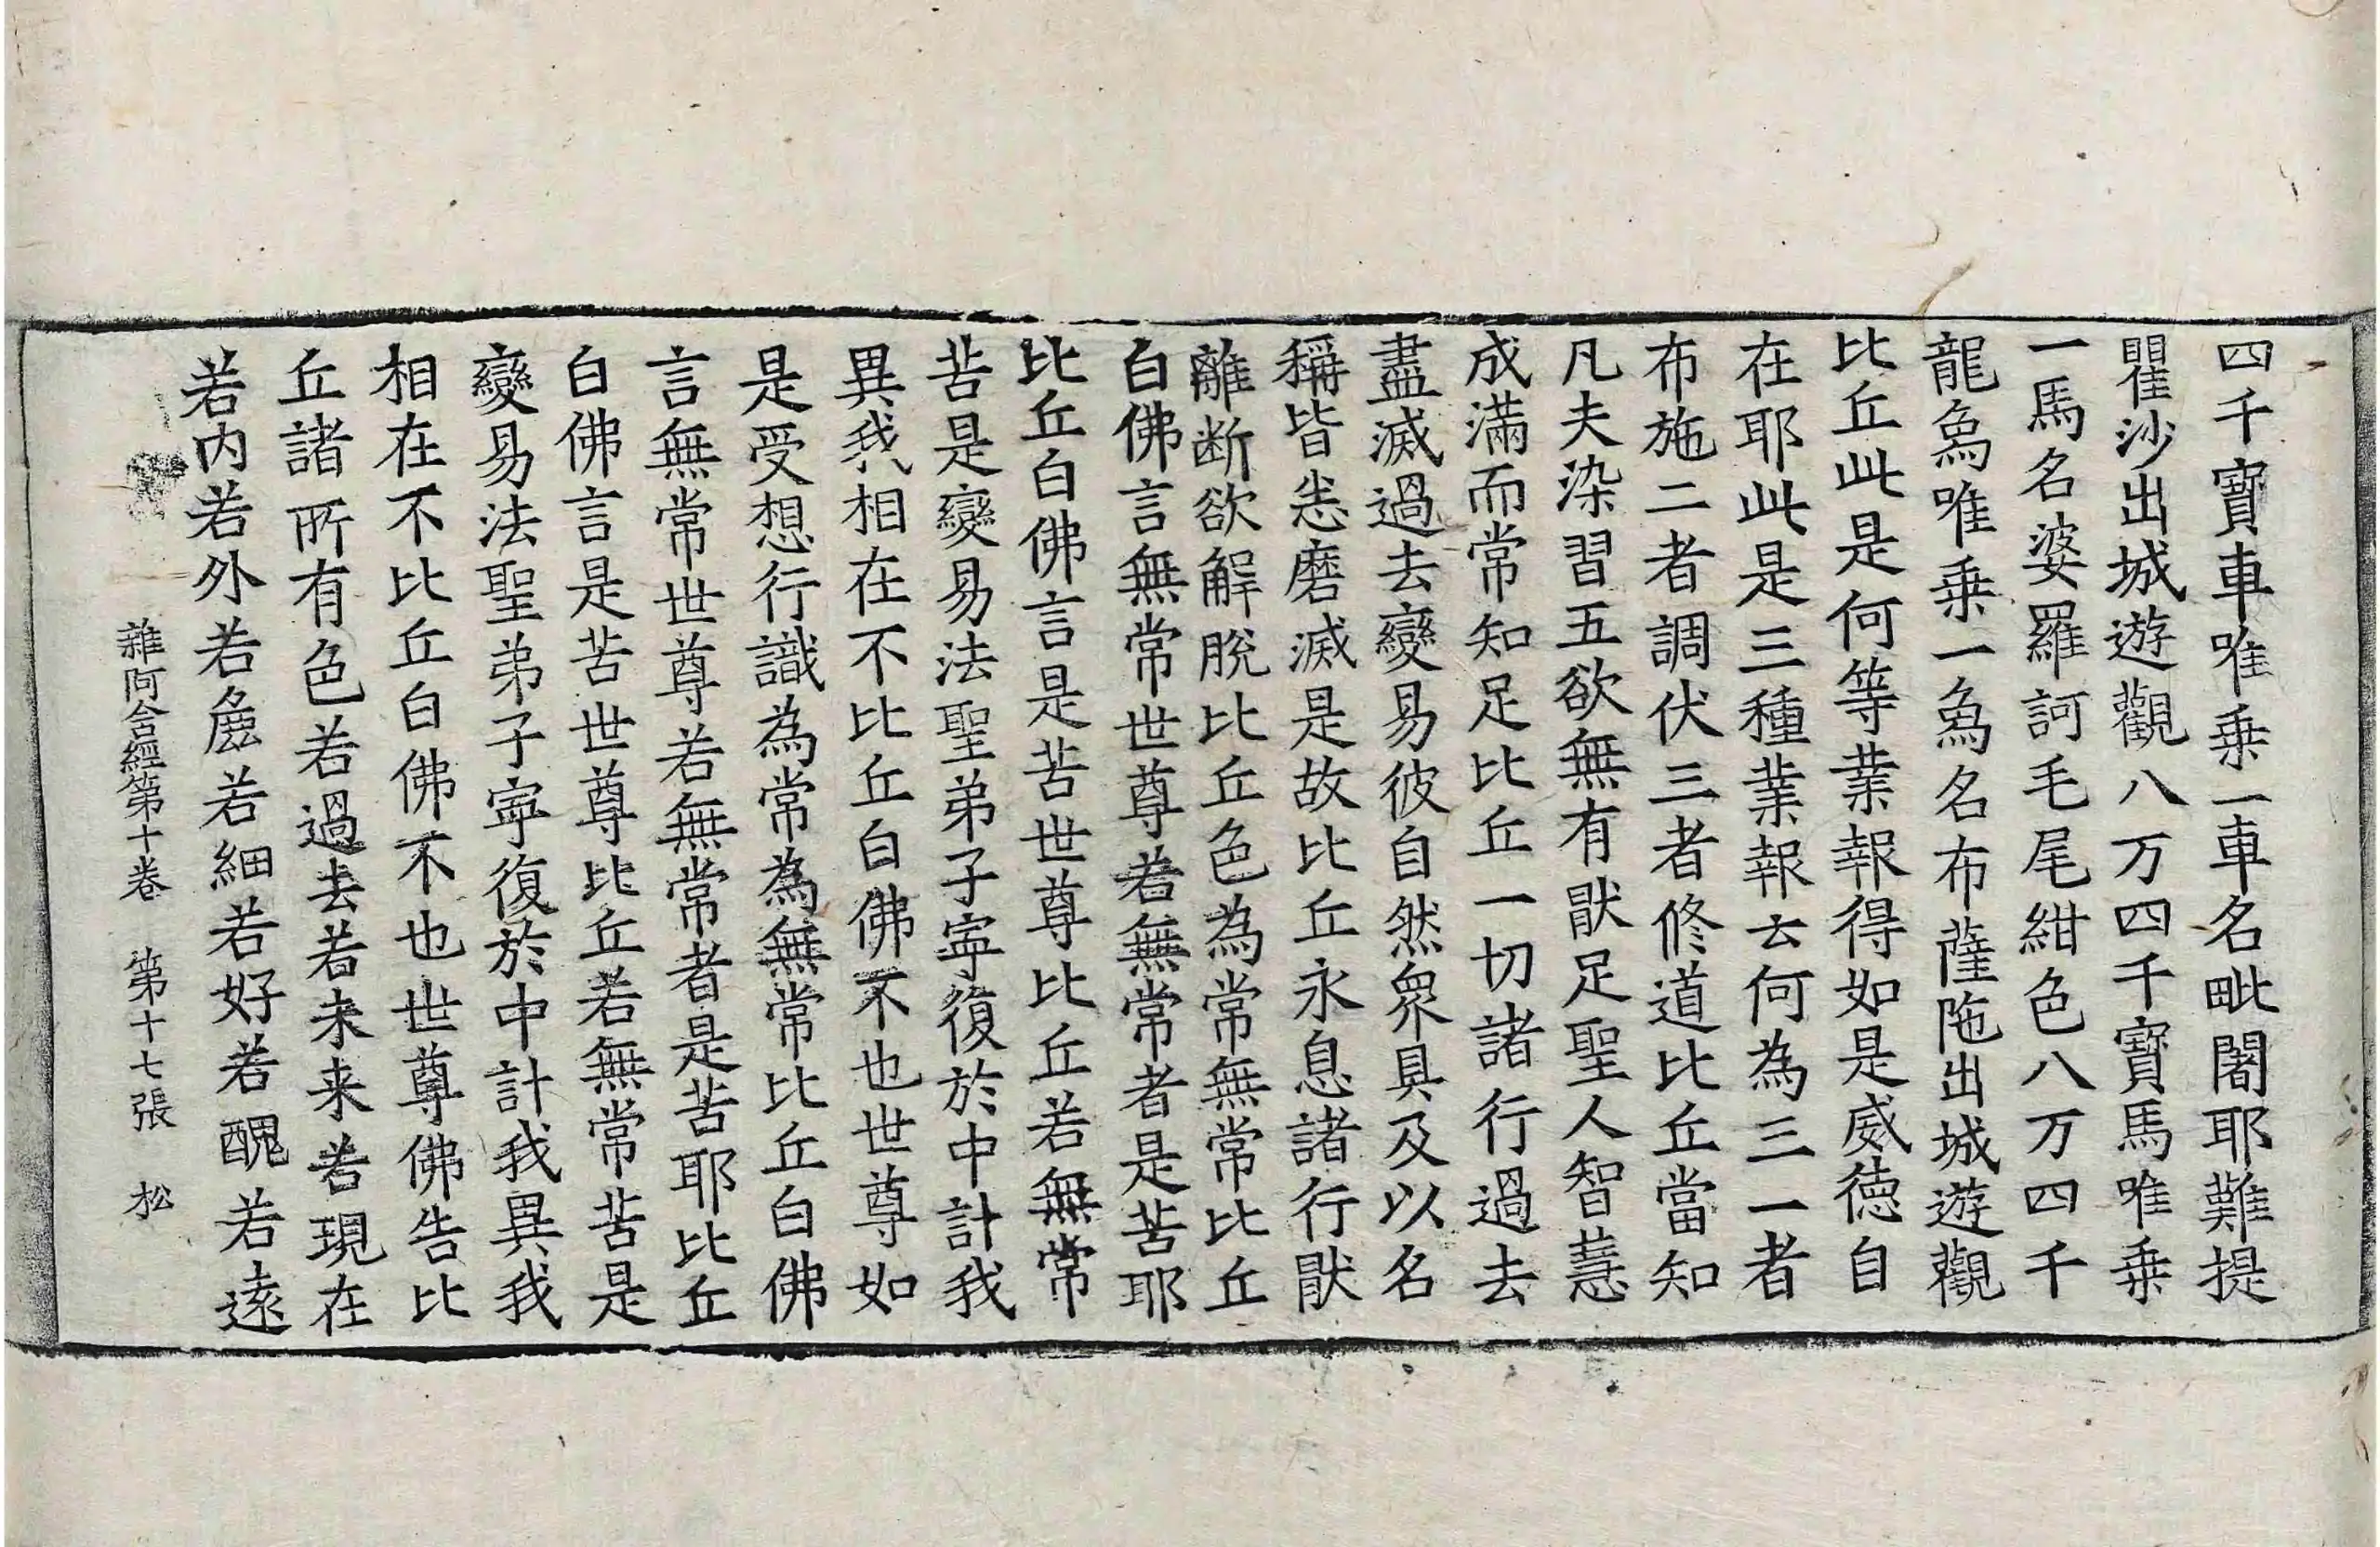 四千寶車唯乗一車名毗闍耶難提
瞿沙出城遊觀八万四千寶馬唯乗
一馬名婆羅訶毛尾紺色八万四千
龍象唯乗一象名布薩陁出城遊觀
比丘此是何等業報得如是威徳自
在耶此是三種業報云何為三一者
布施二者調伏三者修道比丘當知
凡夫染習五欲無有猒足聖人智慧
成滿而常知足比丘一切諸行過去
盡滅過去變易彼自然衆具及以名
稱皆悉磨滅是故比丘永息諸行猒
離断欲解脫比丘色為常無常比丘
白佛言無常世尊若無常者是苦耶
比丘白佛言是苦世尊比丘若無常
苦是變易法聖弟子寧復於中計我
異我相在不比丘白佛不也世尊如
是受想行識為常為無常比丘白佛
言無常世尊若無常者是苦耶比丘
白佛言是苦世尊比丘若無常苦是
變易法聖弟子寧復於中計我異我
相在不比丘白佛不也世尊佛告比
丘諸所有色若過去若未来若現在
若内若外若麁若細若好若醜若遠
雜阿含經第十卷　第十七張　松